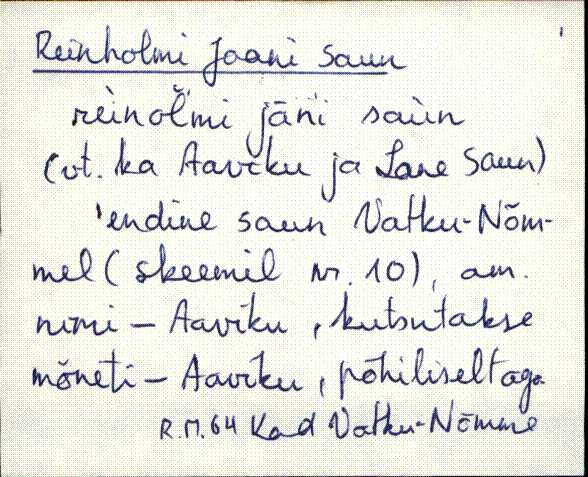 Reinholmi Jaani Saun
rèinoľ̆mi jāni saùn
(vt. ka Aaviku ja Lane Saun)
'endine saun Vatku-Nõm-
mel (skeemil nr. 10), am.
nimi - Aaviku, kutsutakse
mõneti - Aaviku, põhiliselt aga
R.M. 64 Kad Vatku-Nõmme